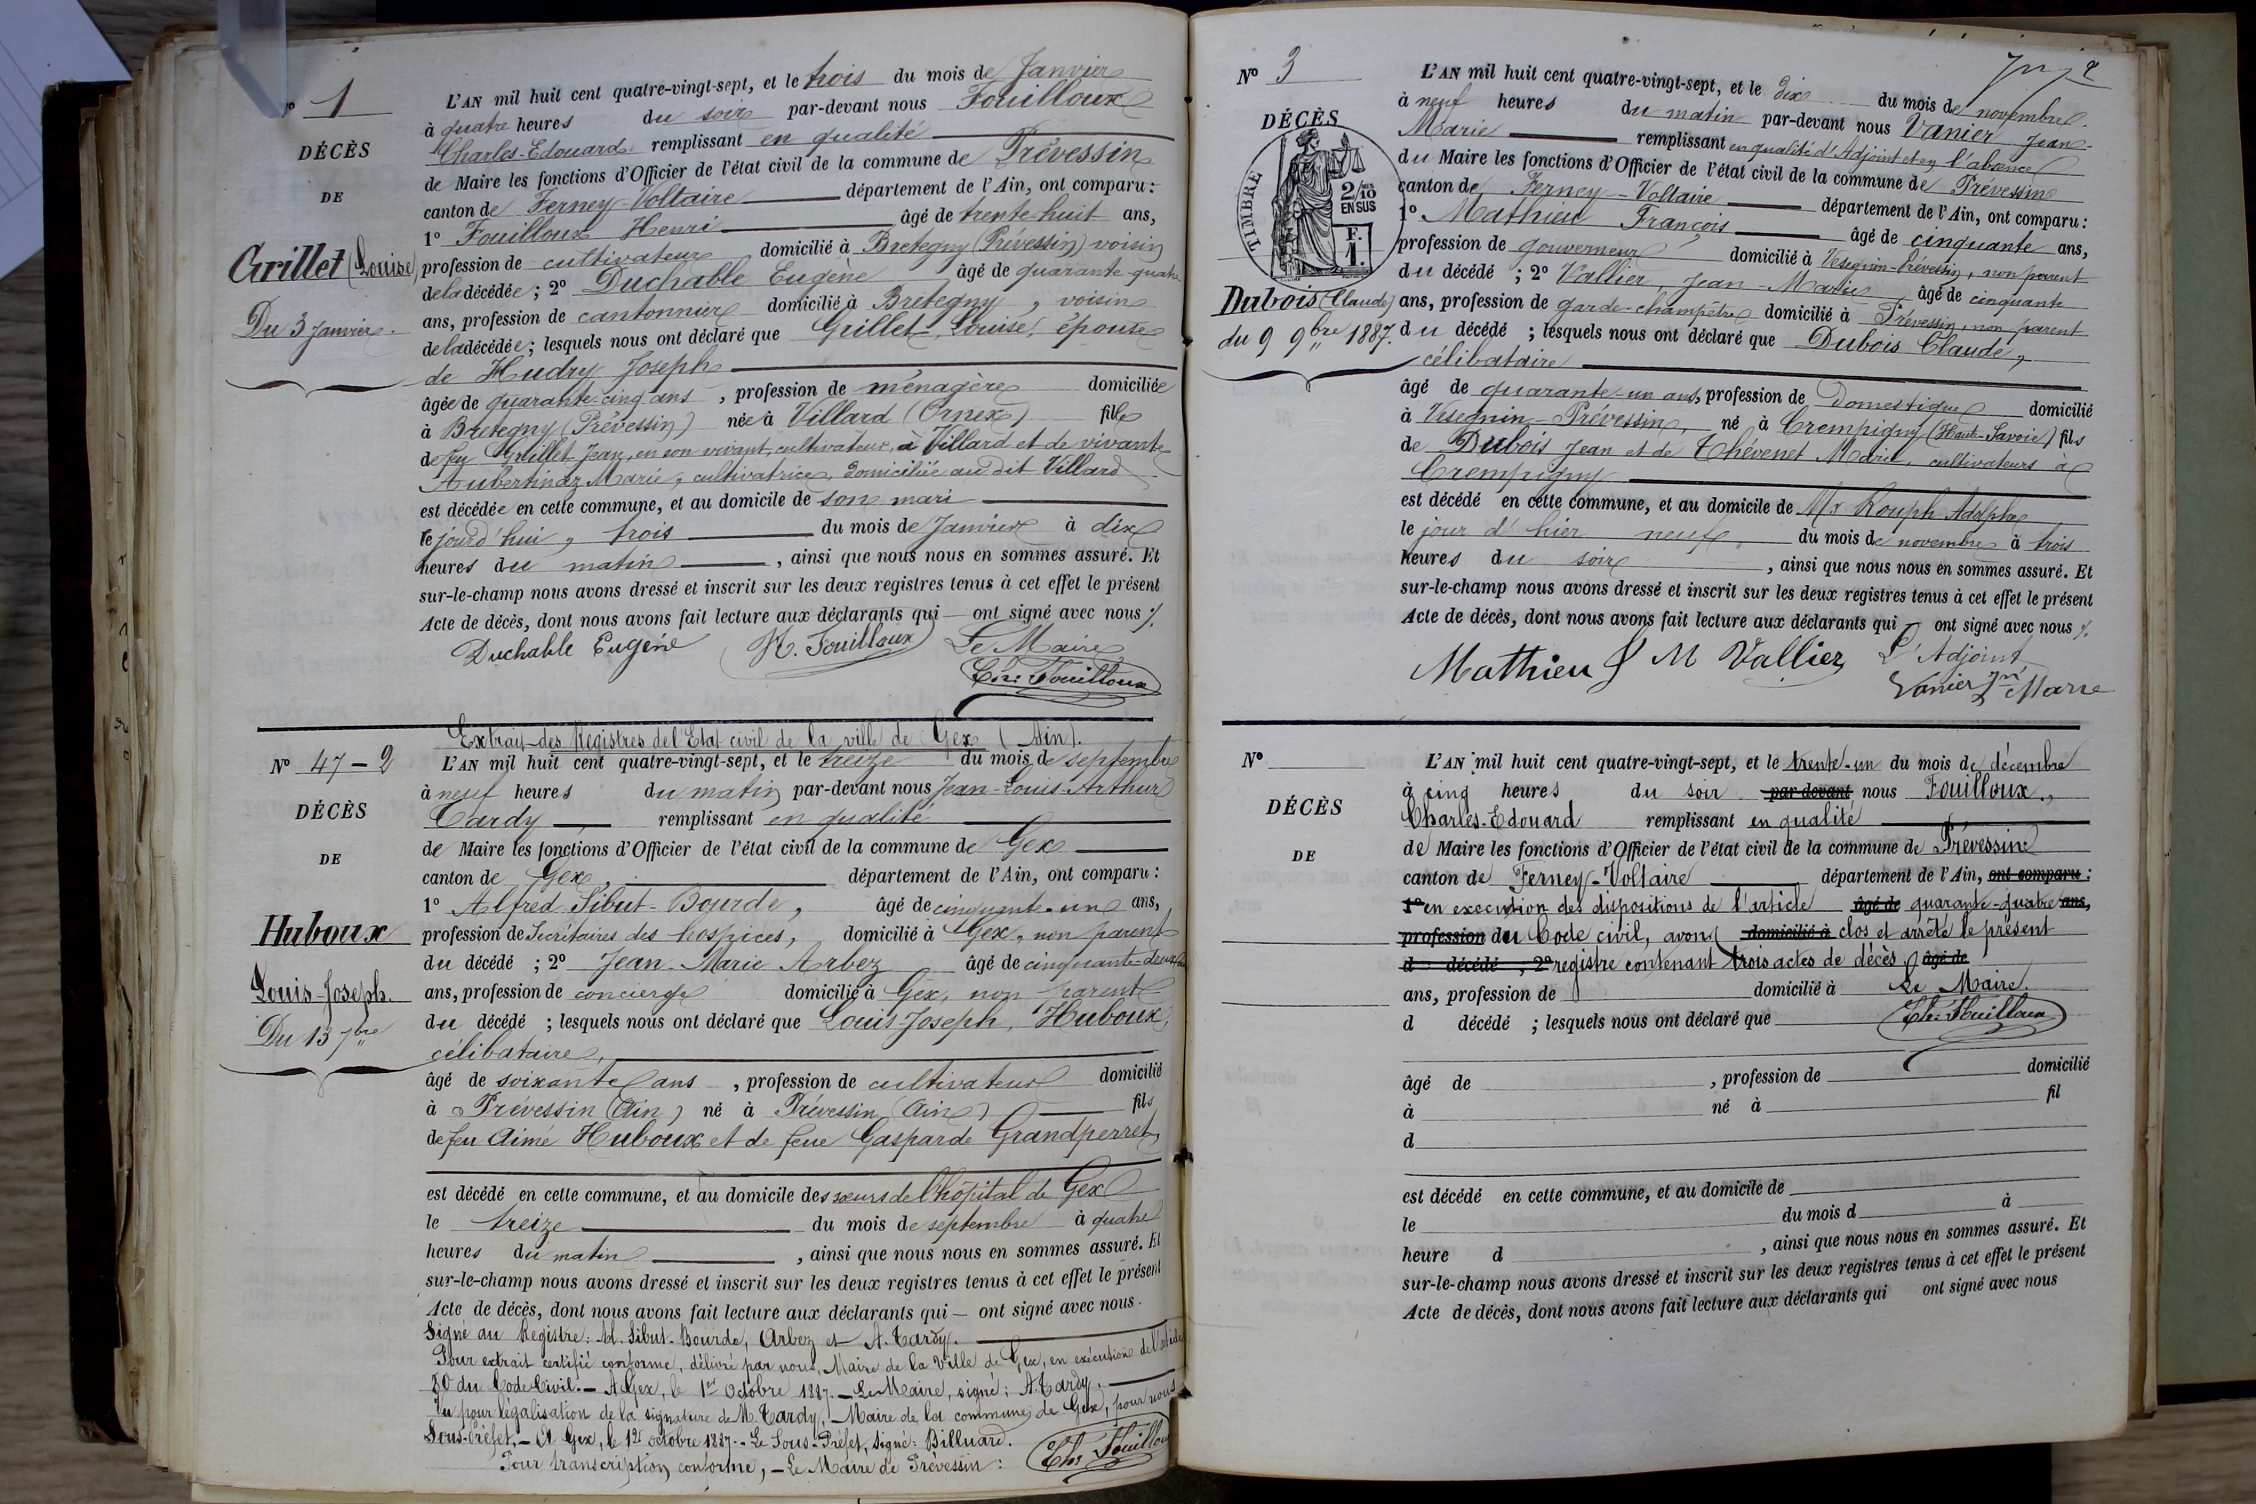 N° 1
DÉCÈS
DE
Grillet (Louise)
Du 3 Janvier.
L'AN mil huit cent quatre-vingt-sept, et le trois du mois de Janvier
à quatre heures du soir par-devant nous Fouilloux
Charles-Edouard remplissant en qualité
de Maire les fonctions d'Officier de l'état civil de la commune de Prévessin
canton de Ferney-Voltaire département de l'Ain, ont comparu :
1° Fouilloux Henri âgé de trente-huit ans,
profession de cultivateur domicilié à Bretegny (Prévessin) voisin
de la décédée ; 2° Duchable Eugène âgé de quarante-quatre
ans, profession de cantonnier domicilié à Bretegny, voisin
de la décédée ; lesquels nous ont déclaré que Grillet, Louise, épouse
de Hudry Joseph
âgée de quarante-cinq ans, profession de ménagère domiciliée
à Bretegny (Prévessin) née à Villard (Ornex) fille
de feu Grillet Jean, en son vivant, cultivateur, à Villard et de vivante
Aubertinaz Marie, cultivatrice, domiciliée au dit Villard
est décédée en cette commune, et au domicile de son mari
le jourd'hui, trois du mois de Janvier à dix
heures du matin, ainsi que nous nous en sommes assuré. Et
sur-le-champ nous avons dressé et inscrit sur les deux registres tenus à cet effet le présent
Acte de décès, dont nous avons fait lecture aux déclarants qui — ont signé avec nous
Duchable Eugéne H. Fouilloux Le Maire,
Chs Fouilloux
N° 47 - 2
DÉCÈS
DE
Huboux
Louis-Joseph.
Du 13 7bre
Extrait des Registres de l'Etat civil de la ville de Gex (Ain).
L'AN mil huit cent quatre-vingt-sept, et le treize du mois de septembre
à neuf heures du matin par-devant nous Jean-Louis-Arthur
Tardy remplissant en qualité
de Maire les fonctions d'Officier de l'état civil de la commune de Gex
canton de Gex, département de l'Ain, ont comparu :
1° Alfred Sibut-Bourde, âgé de cinquante-un ans,
profession de Secrétaires des hospices, domicilié à Gex, non parent
du décédé ; 2° Jean-Marie Arbez âgé de cinquante-deux
ans, profession de concierge domicilié à Gex, non parent
du décédé ; lesquels nous ont déclaré que Louis-Joseph, Huboux,
célibataire,
âgé de soixante ans, profession de cultivateur domicilié
à Prévessin (Ain) né à Prévessin (Ain) fils
de feu Aimé Huboux et de feue Gasparde Grandperret,
est décédé en cette commune, et au domicile des sœurs de l'hôpital de Gex
le treize du mois de septembre à quatre
heures du matin, ainsi que nous nous en sommes assuré. Et
sur-le-champ nous avons dressé et inscrit sur les deux registres tenus à cet effet le présent
Acte de décès, dont nous avons fait lecture aux déclarants qui — ont signé avec nous.
Signé au Registre : Ad. Sibut-Bourde, Arbez et A. Tardy.
Pour extrait certifié conforme, délivré par nous, Maire de la Ville de Gex, en exécution de l'article
80 du Code Civil. — A Gex, le 1er Octobre 1887. — Le Maire, signé : A. Tardy.
Vu pour légalisation de la signature de M. Tardy, — Maire de la commune de Gex, pour nous
Sous-Préfet, — A Gex, le 1er octobre 1887. — Le Sous-Préfet, signé : Billuard.
Pour transcription conforme, — Le Maire de Prévessin : Chs Fouilloux
N° 3
DÉCÈS
TIMBRE
2/10
EN SUS
F.
1.
Dubois (Claude)
du 9 9bre 1887.
L'AN mil huit cent quatre-vingt-sept, et le dix du mois de novembre
à neuf heures du matin par-devant nous Vanier Jean-
Marie remplissant en qualité d'Adjoint et en l'absence
du Maire les fonctions d'Officier de l'état civil de la commune de Prévessin
canton de Ferney-Voltaire département de l'Ain, ont comparu :
1° Mathieu François âgé de cinquante ans,
profession de gouverneur domicilié à Vesegnin-Prévessin, non parent
du décédé ; 2° Vallier, Jean-Marie âgé de cinquante
ans, profession de garde-champêtre domicilié à Prévessin, non parent
du décédé ; lesquels nous ont déclaré que Dubois Claude,
célibataire
âgé de quarante-un ans, profession de Domestique domicilié
à Vesegnin-Prévessin, né à Crempigny (Haute-Savoie) fils
de Dubois Jean et de Thévenet Marie, cultivateurs à
Crempigny
est décédé en cette commune, et au domicile de Mr Rouph Adolphe
le jour d'hier neuf, du mois de novembre à trois
heures du soir, ainsi que nous nous en sommes assuré. Et
sur-le-champ nous avons dressé et inscrit sur les deux registres tenus à cet effet le présent
Acte de décès, dont nous avons fait lecture aux déclarants qui ont signé avec nous
Mathieu J M Vallier L'Adjoint
Vanier Jn Marie
N°
DÉCÈS
DE
L'AN mil huit cent quatre-vingt-sept, et le trente-un du mois de décembre
à cinq heures du soir par-devant nous Fouilloux,
Charles-Edouard remplissant en qualité
de Maire les fonctions d'Officier de l'état civil de la commune de Prévessin
canton de Ferney-Voltaire département de l'Ain, ont comparu :
1° en execution des dispositions de l'article âgé de quarante-quatre ans,
profession du Code civil, avons domicilié à clos et arrêté le présent
d décédé ; 2° registre contenant trois actes de décès âgé de
ans, profession de domicilié à Le Maire.
d décédé ; lesquels nous ont déclaré que Chs Fouilloux
âgé de , profession de domicilié
à né à fil
d
est décédé en cette commune, et au domicile de
le du mois d à
heure d , ainsi que nous nous en sommes assuré. Et
sur-le-champ nous avons dressé et inscrit sur les deux registres tenus à cet effet le présent
Acte de décès, dont nous avons fait lecture aux déclarants qui ont signé avec nous